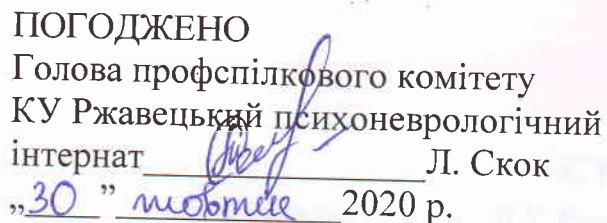 ПОГОДЖЕНО
Голова профспілкового комітету
КУ Ржавецький психоневрологічний
інтернат______________Л. Скок
„30” жовтня 2020 р.